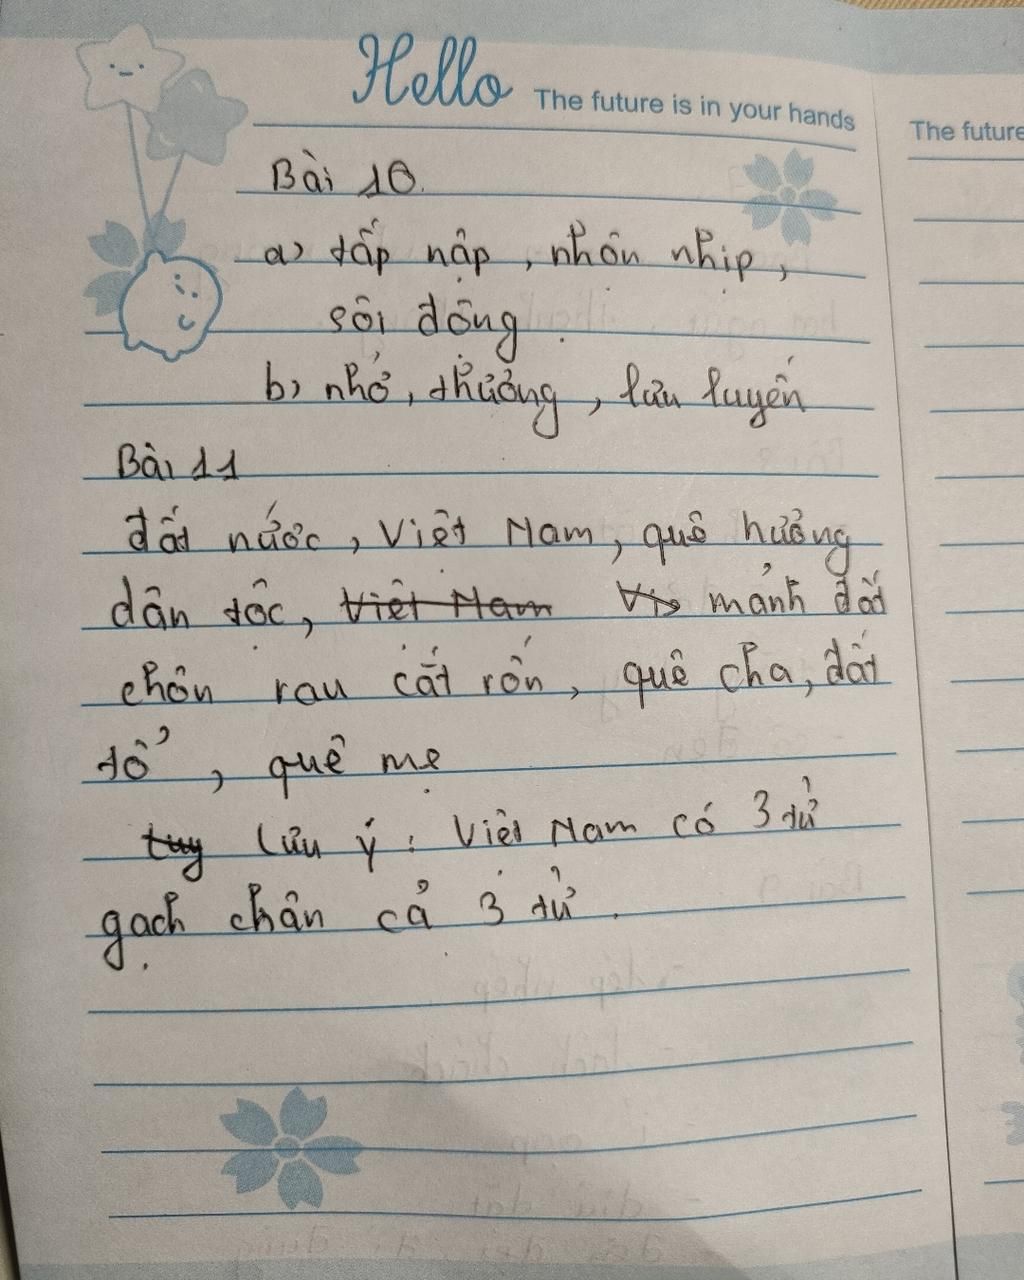 Hello The future is in your hands
The future
Bài 10.
a) tấp nập, nhộn nhịp,
sôi động.
b) nhớ, thương, lưu luyến
Bài 11
đất nước, Việt Nam, quê hương
dân tộc, Việt Nam mảnh đất
chôn rau cắt rốn, quê cha, đất
tổ, quê mẹ
tuy Lưu ý: Việt Nam có 3 từ
gạch chân cả 3 từ.